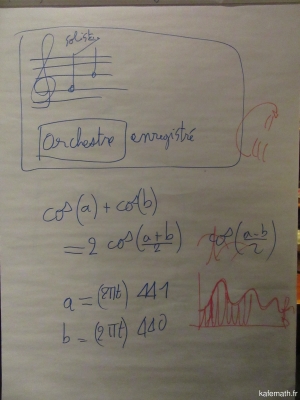 soliste
orchestre enregistré
cos(a) + cos(b)
= 2 cos(a+b/2) cos(a-b/2)
a = (2πt) 441
b = (2πt) 440
kafemath.fr